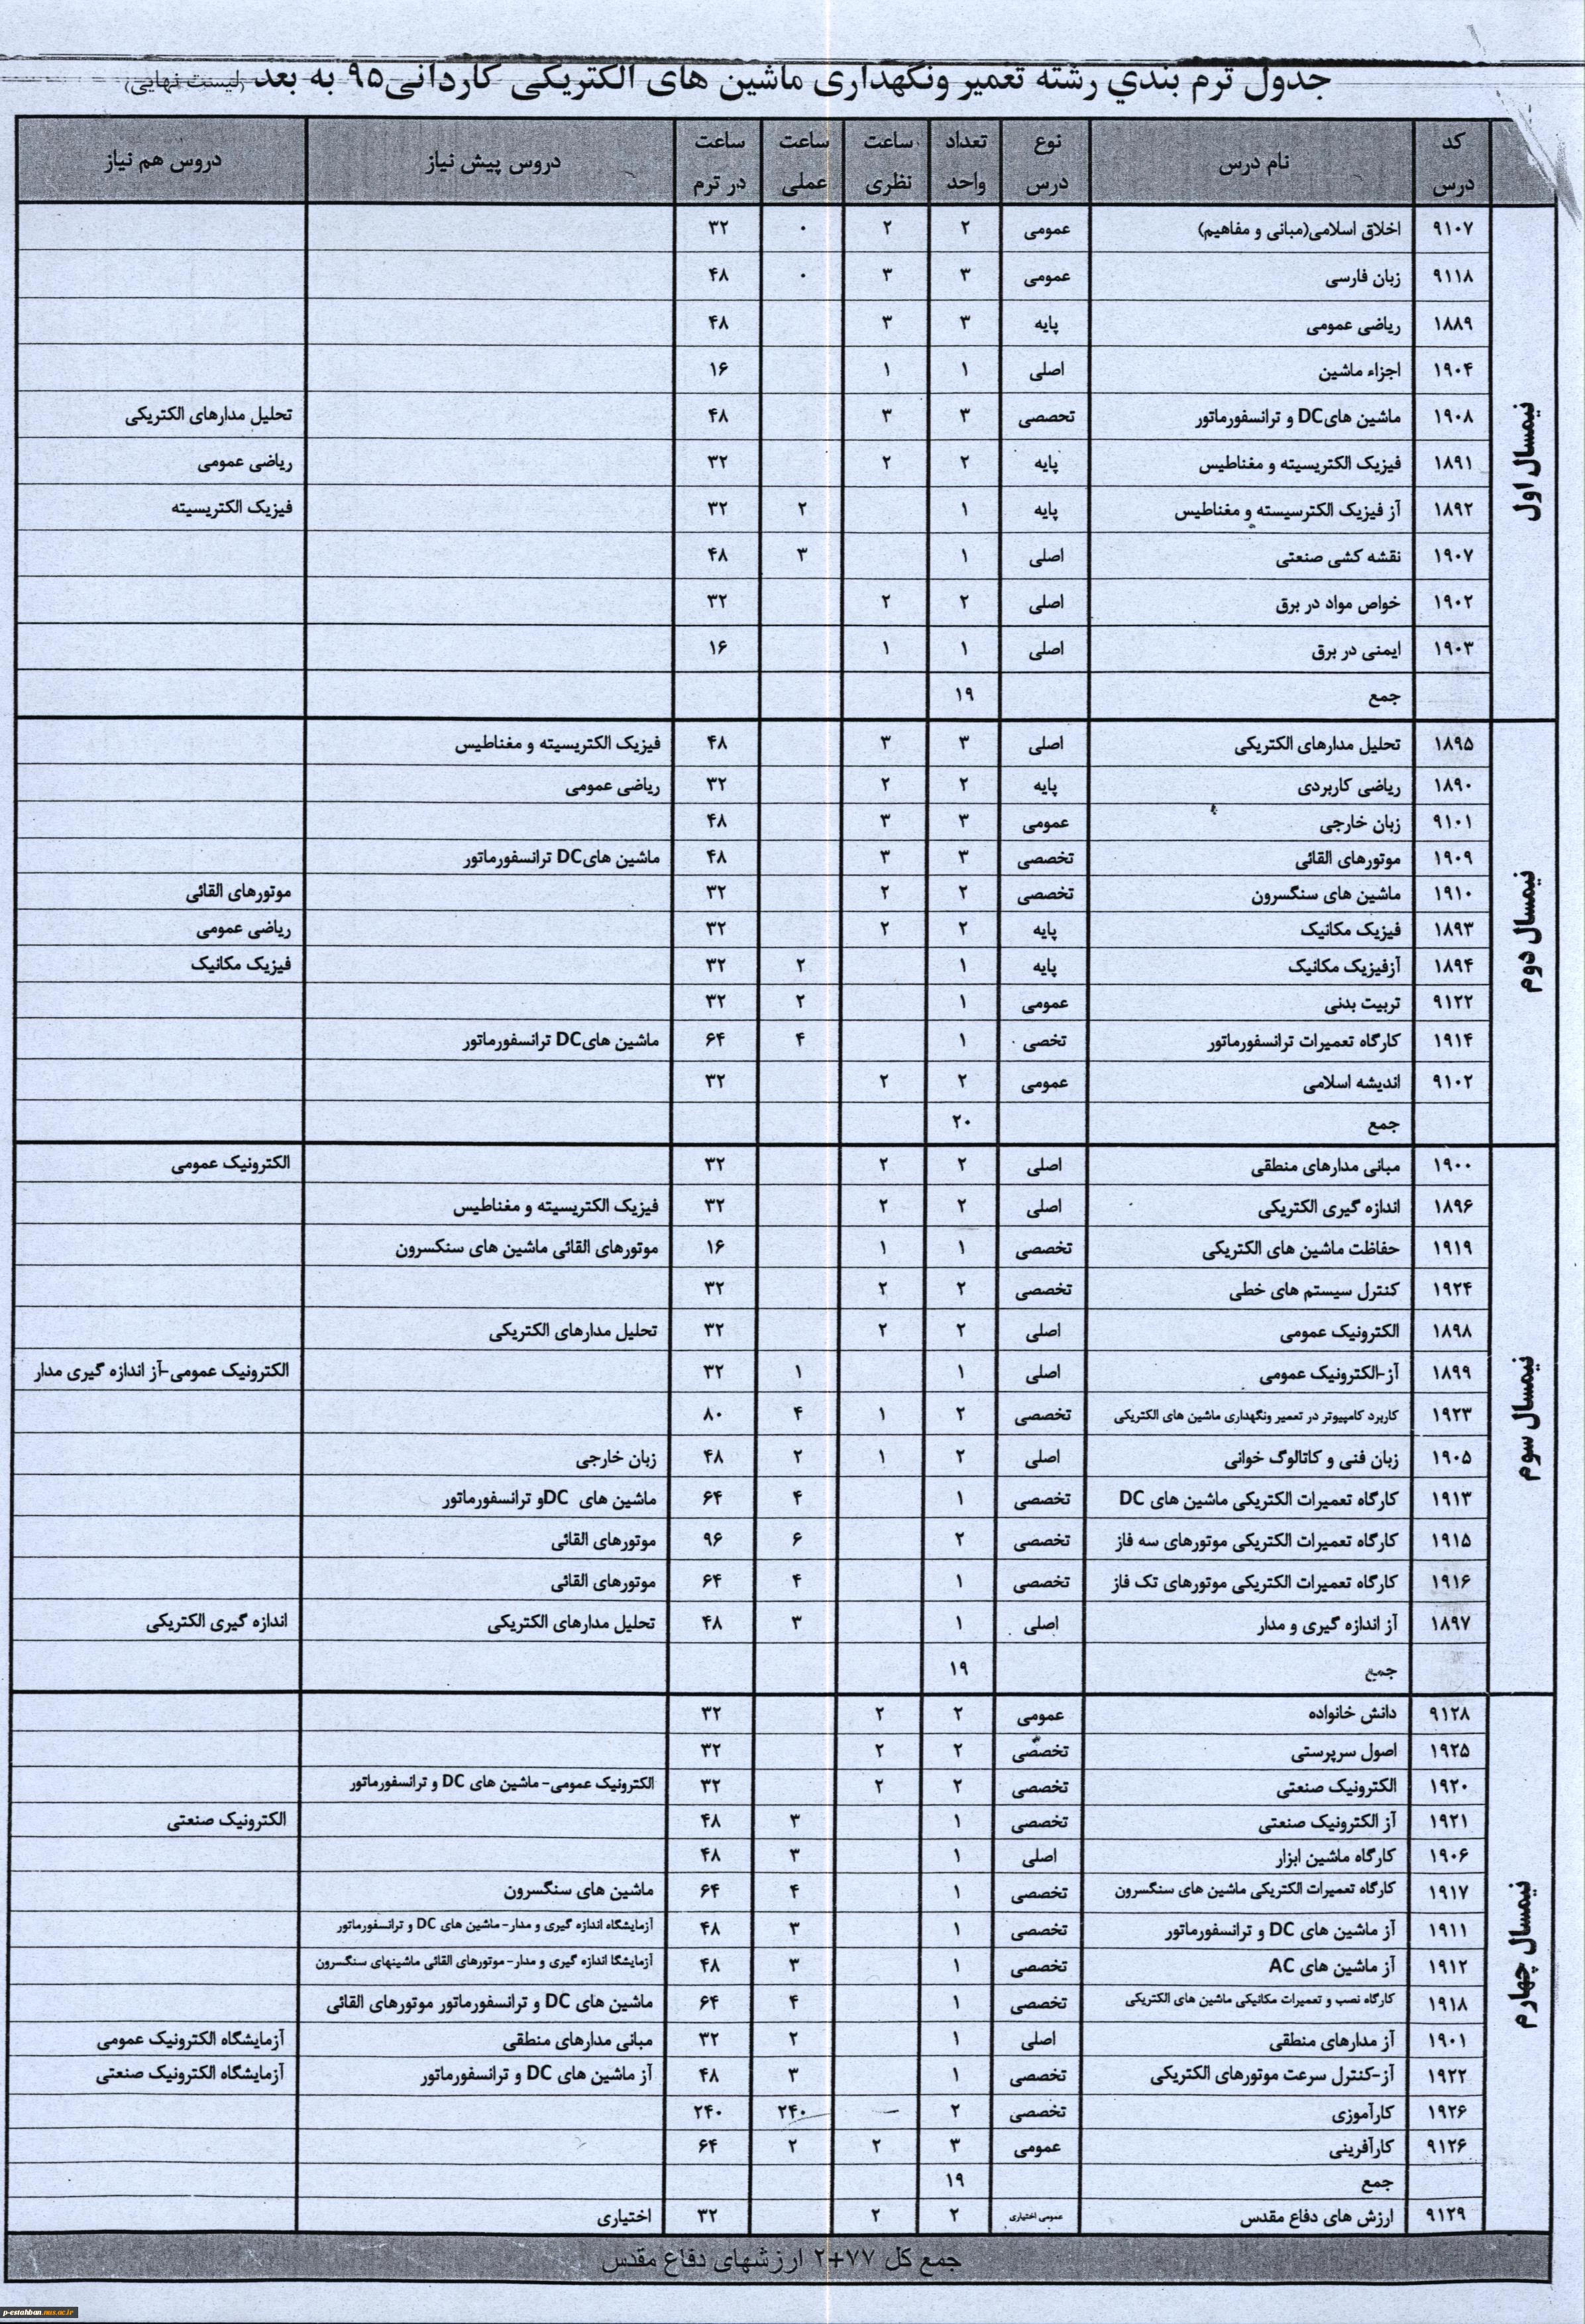 جدول ترم بندي رشته تعمیر ونگهداری ماشین های الکتریکی کاردانی۹۵ به بعد (لیست نهایی)
کد درس نام درس نوع درس تعداد واحد ساعت نظری ساعت عملی ساعت در ترم دروس پیش نیاز دروس هم نیاز
نیمسال اول
۹۱۰۷ اخلاق اسلامی(مبانی و مفاهیم) عمومی ۲ ۲ ۰ ۳۲
۹۱۱۸ زبان فارسی عمومی ۳ ۳ ۰ ۴۸
۱۸۸۹ ریاضی عمومی پایه ۳ ۳ ۴۸
۱۹۰۴ اجزاء ماشین اصلی ۱ ۱ ۱۶
۱۹۰۸ ماشین هایDC و ترانسفورماتور تحصصی ۳ ۳ ۴۸ تحلیل مدارهای الکتریکی
۱۸۹۱ فیزیک الکتریسیته و مغناطیس پایه ۲ ۲ ۳۲ ریاضی عمومی
۱۸۹۲ آز فیزیک الکترسیسته و مغناطیس پایه ۱ ۲ ۳۲ فیزیک الکتریسیته
۱۹۰۷ نقشه کشی صنعتی اصلی ۱ ۳ ۴۸
۱۹۰۲ خواص مواد در برق اصلی ۲ ۲ ۳۲
۱۹۰۳ ایمنی در برق اصلی ۱ ۱ ۱۶
جمع ۱۹
نیمسال دوم
۱۸۹۵ تحلیل مدارهای الکتریکی اصلی ۳ ۳ ۴۸ فیزیک الکتریسیته و مغناطیس
۱۸۹۰ ریاضی کاربردی پایه ۲ ۲ ۳۲ ریاضی عمومی
۹۱۰۱ زبان خارجی عمومی ۳ ۳ ۴۸
۱۹۰۹ موتورهای القائی تخصصی ۳ ۳ ۴۸ ماشین هایDC ترانسفورماتور
۱۹۱۰ ماشین های سنگسرون تخصصی ۲ ۲ ۳۲ موتورهای القائی
۱۸۹۳ فیزیک مکانیک پایه ۲ ۲ ۳۲ ریاضی عمومی
۱۸۹۴ آزفیزیک مکانیک پایه ۱ ۲ ۳۲ فیزیک مکانیک
۹۱۲۲ تربیت بدنی عمومی ۱ ۲ ۳۲
۱۹۱۴ کارگاه تعمیرات ترانسفورماتور تخصی ۱ ۴ ۶۴ ماشین هایDC ترانسفورماتور
۹۱۰۲ اندیشه اسلامی عمومی ۲ ۲ ۳۲
جمع ۲۰
نیمسال سوم
۱۹۰۰ مبانی مدارهای منطقی اصلی ۲ ۲ ۳۲ الکترونیک عمومی
۱۸۹۶ اندازه گیری الکتریکی اصلی ۲ ۲ ۳۲ فیزیک الکتریسیته و مغناطیس
۱۹۱۹ حفاظت ماشین های الکتریکی تخصصی ۱ ۱ ۱۶ موتورهای القائی ماشین های سنکسرون
۱۹۲۴ کنترل سیستم های خطی تخصصی ۲ ۲ ۳۲
۱۸۹۸ الکترونیک عمومی اصلی ۲ ۲ ۳۲ تحلیل مدارهای الکتریکی
۱۸۹۹ آز-الکترونیک عمومی اصلی ۱ ۱ ۳۲ الکترونیک عمومی-آز اندازه گیری مدار
۱۹۲۳ کاربرد کامپیوتر در تعمیر ونگهداری ماشین های الکتریکی تخصصی ۲ ۱ ۴ ۸۰
۱۹۰۵ زبان فنی و کاتالوگ خوانی اصلی ۲ ۱ ۲ ۴۸ زبان خارجی
۱۹۱۳ کارگاه تعمیرات الکتریکی ماشین های DC تخصصی ۱ ۴ ۶۴ ماشین های DCو ترانسفورماتور
۱۹۱۵ کارگاه تعمیرات الکتریکی موتورهای سه فاز تخصصی ۲ ۶ ۹۶ موتورهای القائی
۱۹۱۶ کارگاه تعمیرات الکتریکی موتورهای تک فاز تخصصی ۱ ۴ ۶۴ موتورهای القائی
۱۸۹۷ آز اندازه گیری و مدار اصلی ۱ ۳ ۴۸ تحلیل مدارهای الکتریکی اندازه گیری الکتریکی
جمع ۱۹
نیمسال چهارم
۹۱۲۸ دانش خانواده عمومی ۲ ۲ ۳۲
۱۹۲۵ اصول سرپرستی تخصصی ۲ ۲ ۳۲
۱۹۲۰ الکترونیک صنعتی تخصصی ۲ ۲ ۳۲ الکترونیک عمومی- ماشین های DC و ترانسفورماتور
۱۹۲۱ آز الکترونیک صنعتی تخصصی ۱ ۳ ۴۸ الکترونیک صنعتی
۱۹۰۶ کارگاه ماشین ابزار اصلی ۱ ۳ ۴۸
۱۹۱۷ کارگاه تعمیرات الکتریکی ماشین های سنگسرون تخصصی ۱ ۴ ۶۴ ماشین های سنگسرون
۱۹۱۱ آز ماشین های DC و ترانسفورماتور تخصصی ۱ ۳ ۴۸ آزمایشگاه اندازه گیری و مدار- ماشین های DC و ترانسفورماتور
۱۹۱۲ آز ماشین های AC تخصصی ۱ ۳ ۴۸ آزمایشگا اندازه گیری و مدار- موتورهای القائی ماشینهای سنگسرون
۱۹۱۸ کارگاه نصب و تعمیرات مکانیکی ماشین های الکتریکی تخصصی ۱ ۴ ۶۴ ماشین های DC و ترانسفورماتور موتورهای القائی
۱۹۰۱ آز مدارهای منطقی اصلی ۱ ۲ ۳۲ مبانی مدارهای منطقی آزمایشگاه الکترونیک عمومی
۱۹۲۲ آز-کنترل سرعت موتورهای الکتریکی تخصصی ۱ ۳ ۴۸ آز ماشین های DC و ترانسفورماتور آزمایشگاه الکترونیک صنعتی
۱۹۲۶ کارآموزی تخصصی ۲ — ۲۴۰ ۲۴۰
۹۱۲۶ کارآفرینی عمومی ۳ ۲ ۲ ۶۴
جمع ۱۹
۹۱۲۹ ارزش های دفاع مقدس عمومی اختیاری ۲ ۲ ۳۲ اختیاری
جمع کل ۷۷+۲ ارزشهای دفاع مقدس
p-estahban.nus.ac.ir